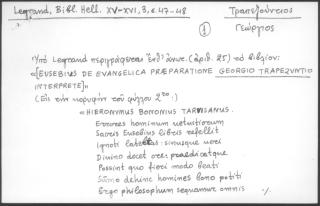 Legrand, Bibl. Hell. XV-XVI, 3, σ. 47-48
Τραπεζούντιος
Γεώργιος
1
Ὑπὸ Legrand περιγράφεται ἔκδ. (ἀριθ. 25) τὸ βιβλίον:
«[EUSEBIUS DE EVANGELICA PRÆPARATIONE GEORGIO TRAPEZVNTIO
INTERPRETE]»
(Εἰς τὴν κορυφὴν τοῦ φύλλου 2ου.)
«HIERONYMUS BONONIUS TARVISANUS.
Errores hominum uetustiorum
Sacris Eusebius libris refellit
Ignoti latebras sinusque ueri
Diuino docet ore: praedicatque
Possint quo fieri modo beati
Sūmo dehinc homines bono potiti
Ergo philosophum sequamur omnis ./.